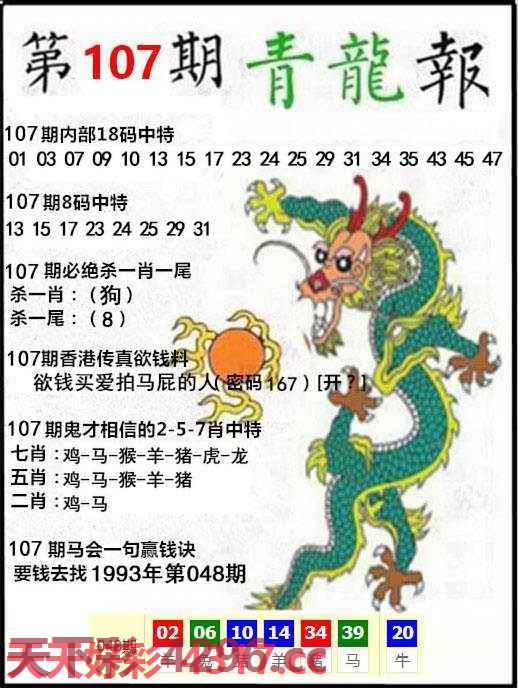 第107期 青龍報
107期内部18码中特
01 03 07 09 10 13 15 17 23 24 25 29 31 34 35 43 45 47
107期8码中特
13 15 17 23 24 25 29 31
107期必绝杀一肖一尾
杀一肖：（狗）
杀一尾：（8）
107期香港传真欲钱料
欲钱买爱拍马屁的人（密码167）[开？]
107期鬼才相信的2-5-7肖中特
七肖：鸡-马-猴-羊-猪-虎-龙
五肖：鸡-马-猴-羊-猪
二肖：鸡-马
107期马会一句赢钱诀
要钱去找1993年第048期
048期 02 06 10 14 34 39 20
羊 猪 羊 猪 马 牛
天天好彩4296.cc